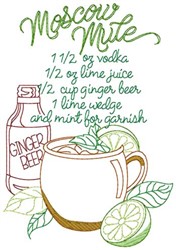 Moscow
Mule
1 1/2 oz vodka
1/2 oz lime juice
1/2 cup ginger beer
1 lime wedge
and mint for garnish
GINGER
BEER